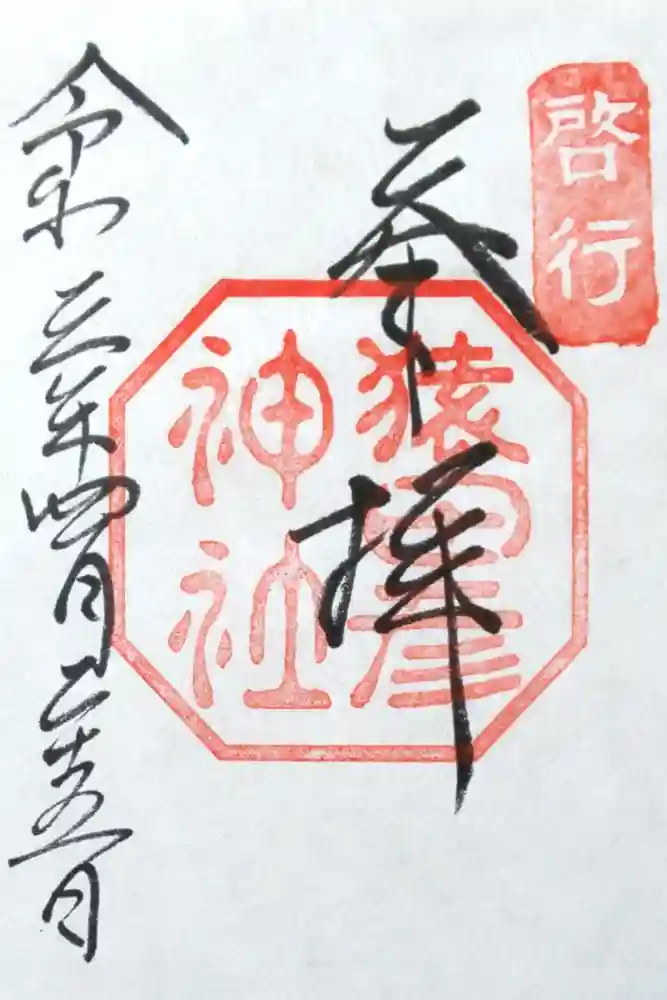 啓行
奉拝
猿田彦
神社
令和三年四月二十五日